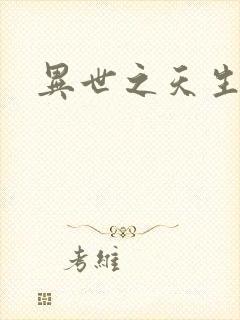 異世之天生
考維